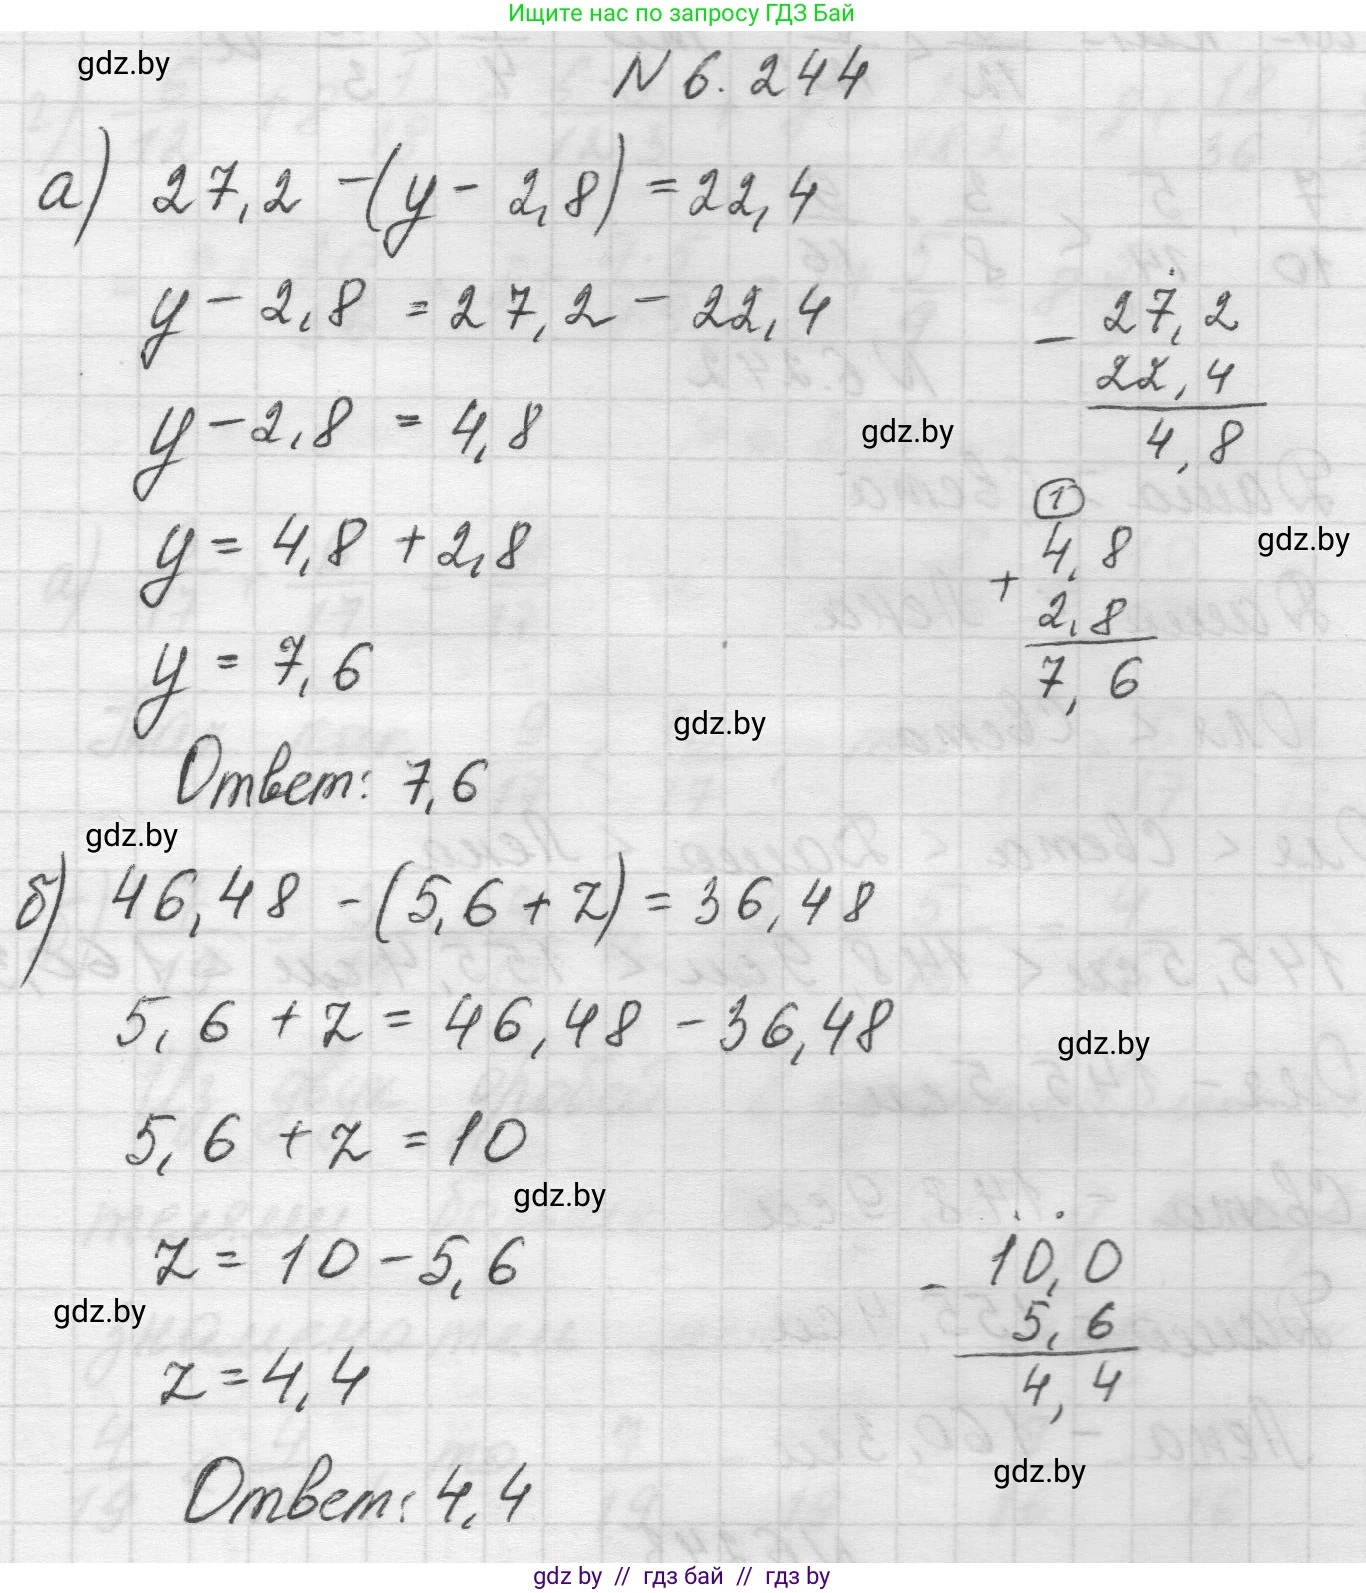 Ищите нас по запросу ГДЗ Бай
gdz.by
N 6.244
а) 27,2 -(y - 2,8) = 22,4
y - 2,8 = 27,2 - 22,4
- 27,2
22,4
4,8
y - 2,8 = 4,8
gdz.by
y = 4,8 + 2,8
1
4,8
+
2,8
7,6
gdz.by
y = 7,6
gdz.by
Ответ: 7,6
gdz.by
б) 46,48 -(5,6 + z) = 36,48
5,6 + z = 46,48 - 36,48
gdz.by
5,6 + z = 10
gdz.by
z = 10 - 5,6
- 10,0
5,6
4,4
gdz.by
z = 4,4
gdz.by
Ответ: 4,4
gdz by // гдз бай // гдз by